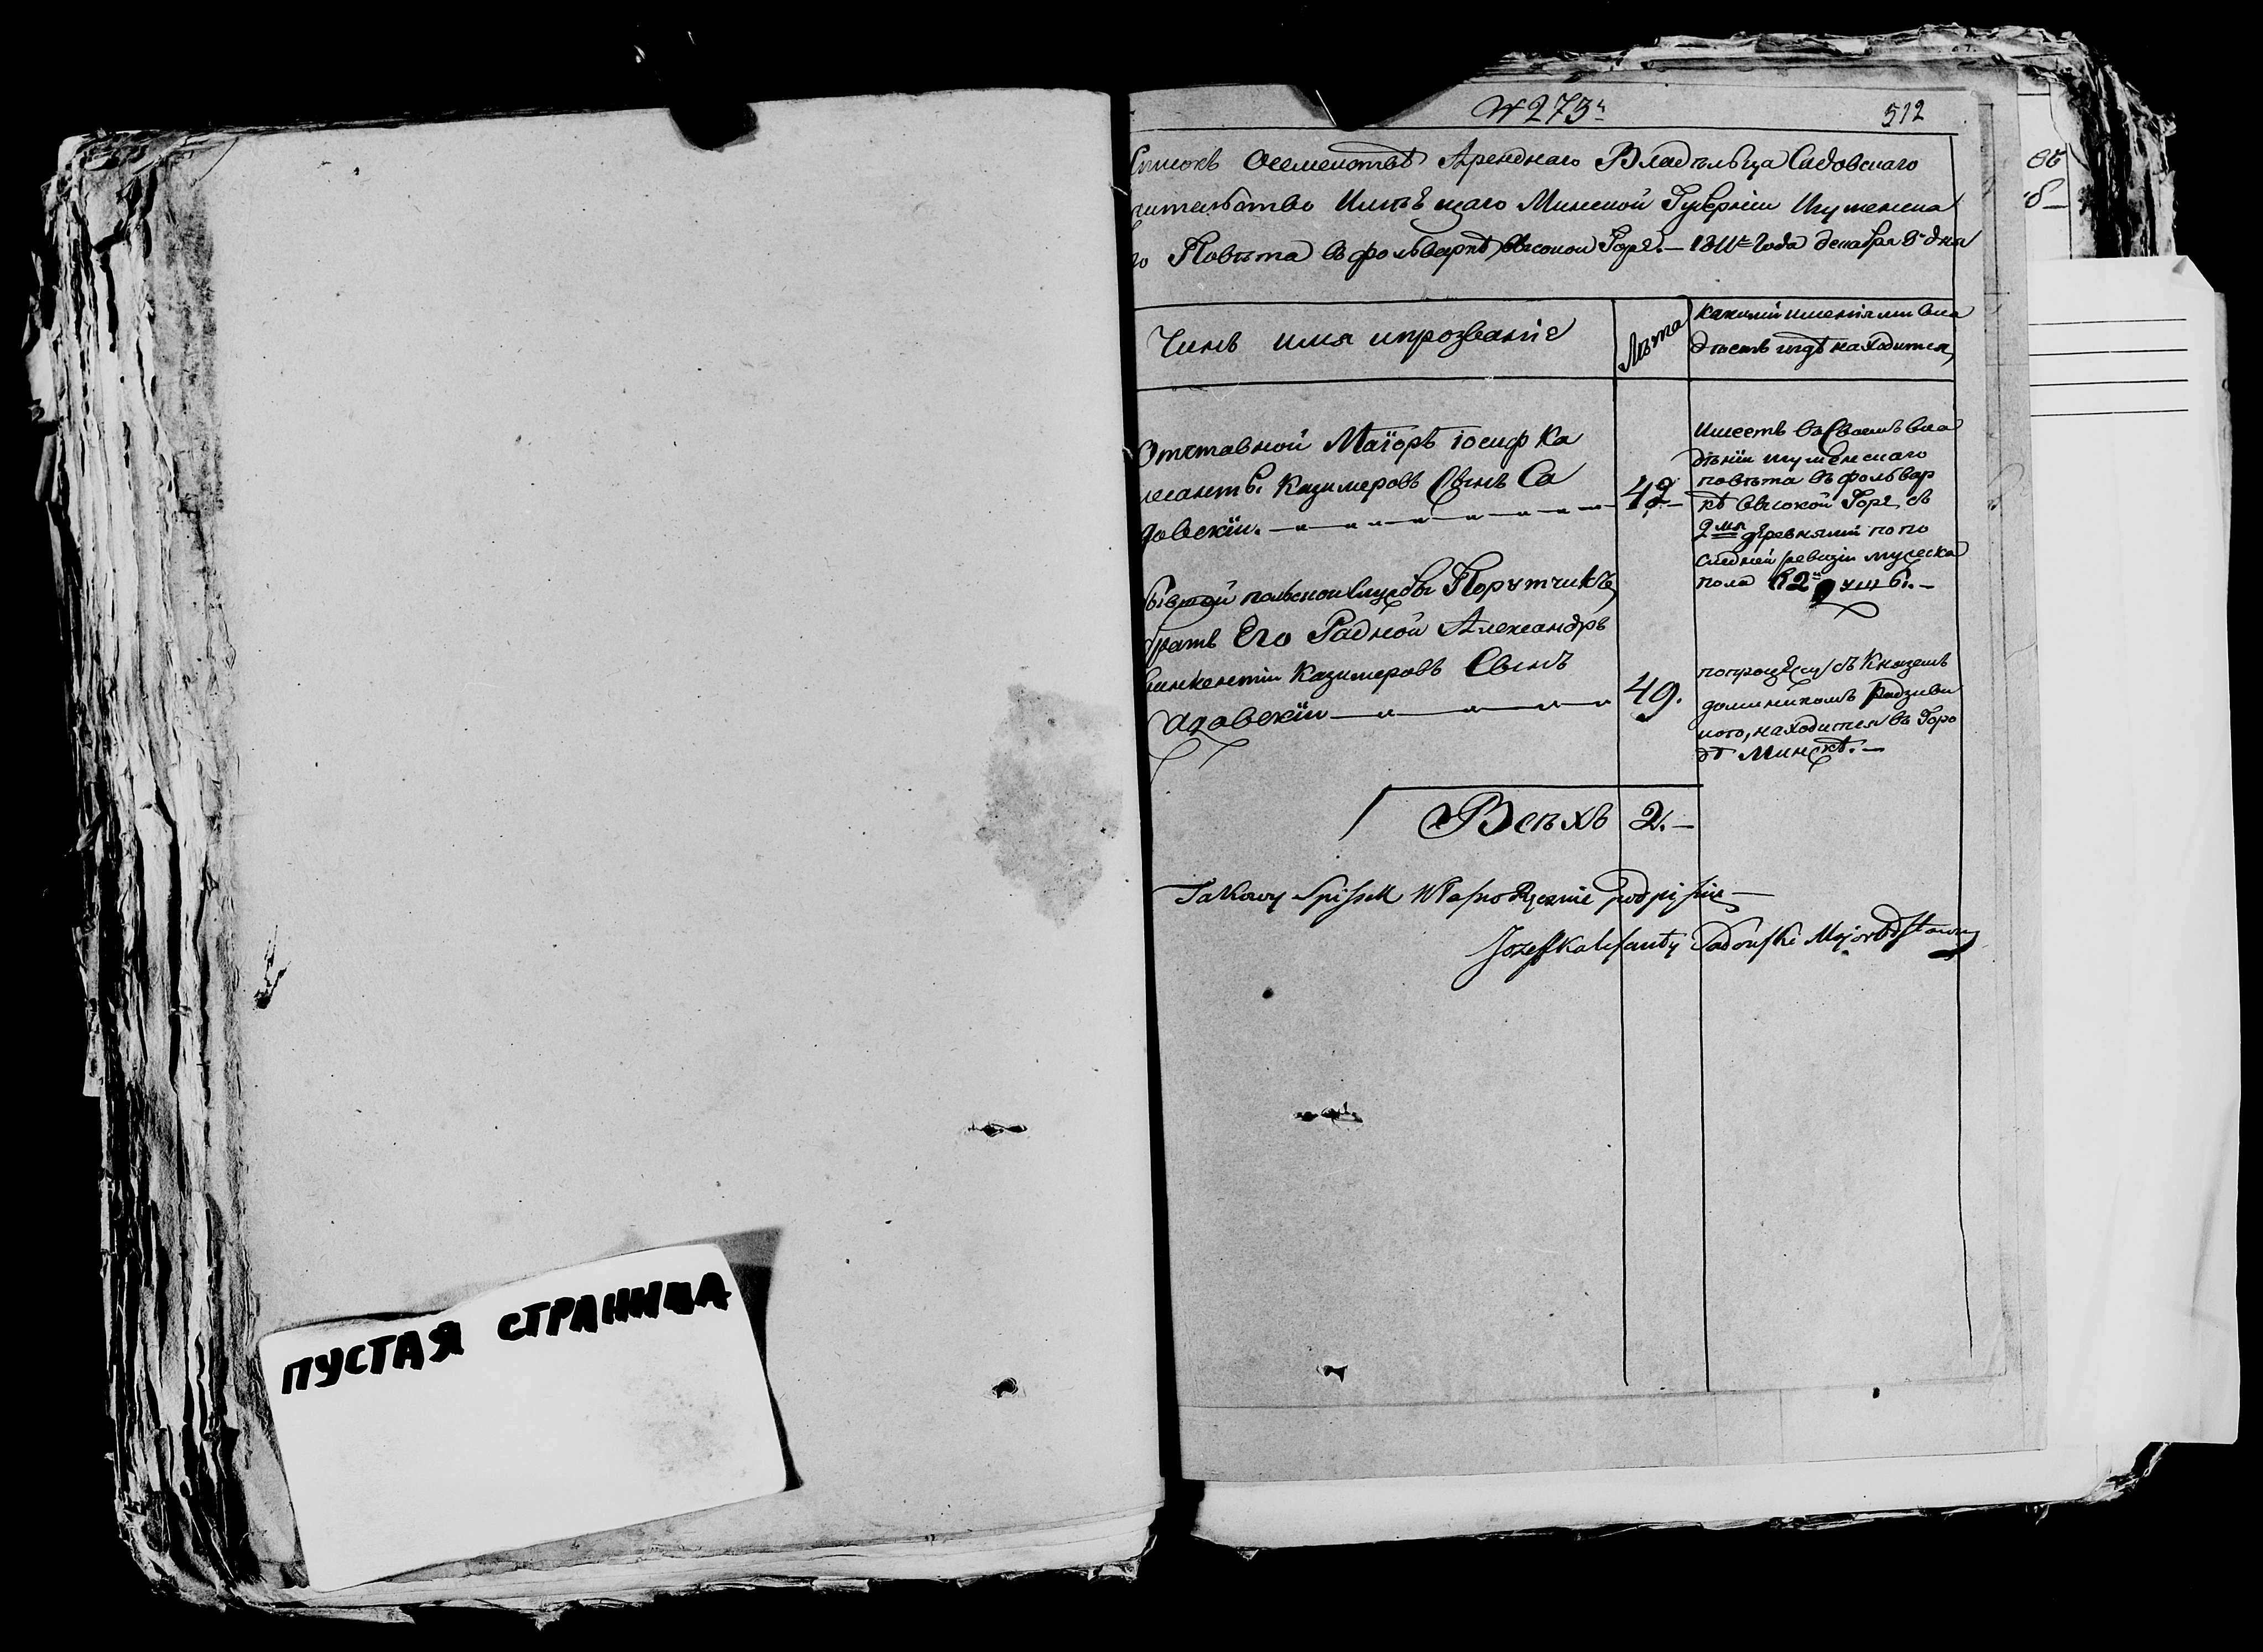 ПУСТАЯ СТРАНИЦА
№ 273й
512
Списокъ Осемействѣ Аренднаго Владѣльца Садовскаго
жительство Имѣющаго Минской Губернии Игуменска
го Повѣта въ фольваркѣ высокой Горѣ. — 1811го Года декабря 8 дня
Чинъ имя ипрозваніе
Лѣта
Какими имениями вла
дѣетъ игдѣ находится
Отставной Маїоръ іосиф Ка
ласанты Казимеровъ Сынъ Са
довскїи.
42
Имеетъ въ Своемъ вла
дѣнїи игуменскаго
повѣта въ фольвар
кѣ Высокой Горѣ съ
2мя деревнями по по
следней ревизіи мужеска
пола 82 души. —
бывшой польской службы Порутчикъ
братъ Его Радной Александръ
винкентїи Казимеровъ Сынъ
Садовскїи
49.
попроцессу съ Княземъ
доминикомъ Радзиви
ломъ, находится въ Горо
дѣ Минскѣ. —
Всѣхъ 2. —
Takowy Spissek Własno Ręcznie podpisuię —
Jozeff Kalasanty Sadowski Major Odstawny